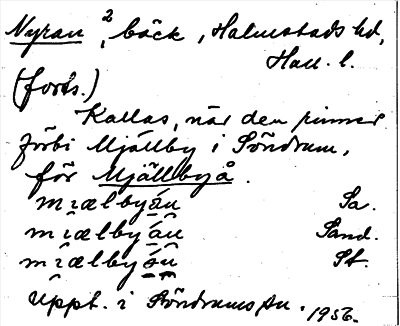 Nyran 2, bäck, Halmstads hd,
Hall. l.
(forts.)
Kallas, när den rinner
förbi Mjällby i Söndrum,
för Mjällbyå.
Sa.
Sand.
St.
Uppt. i Söndrums sn. 1936.